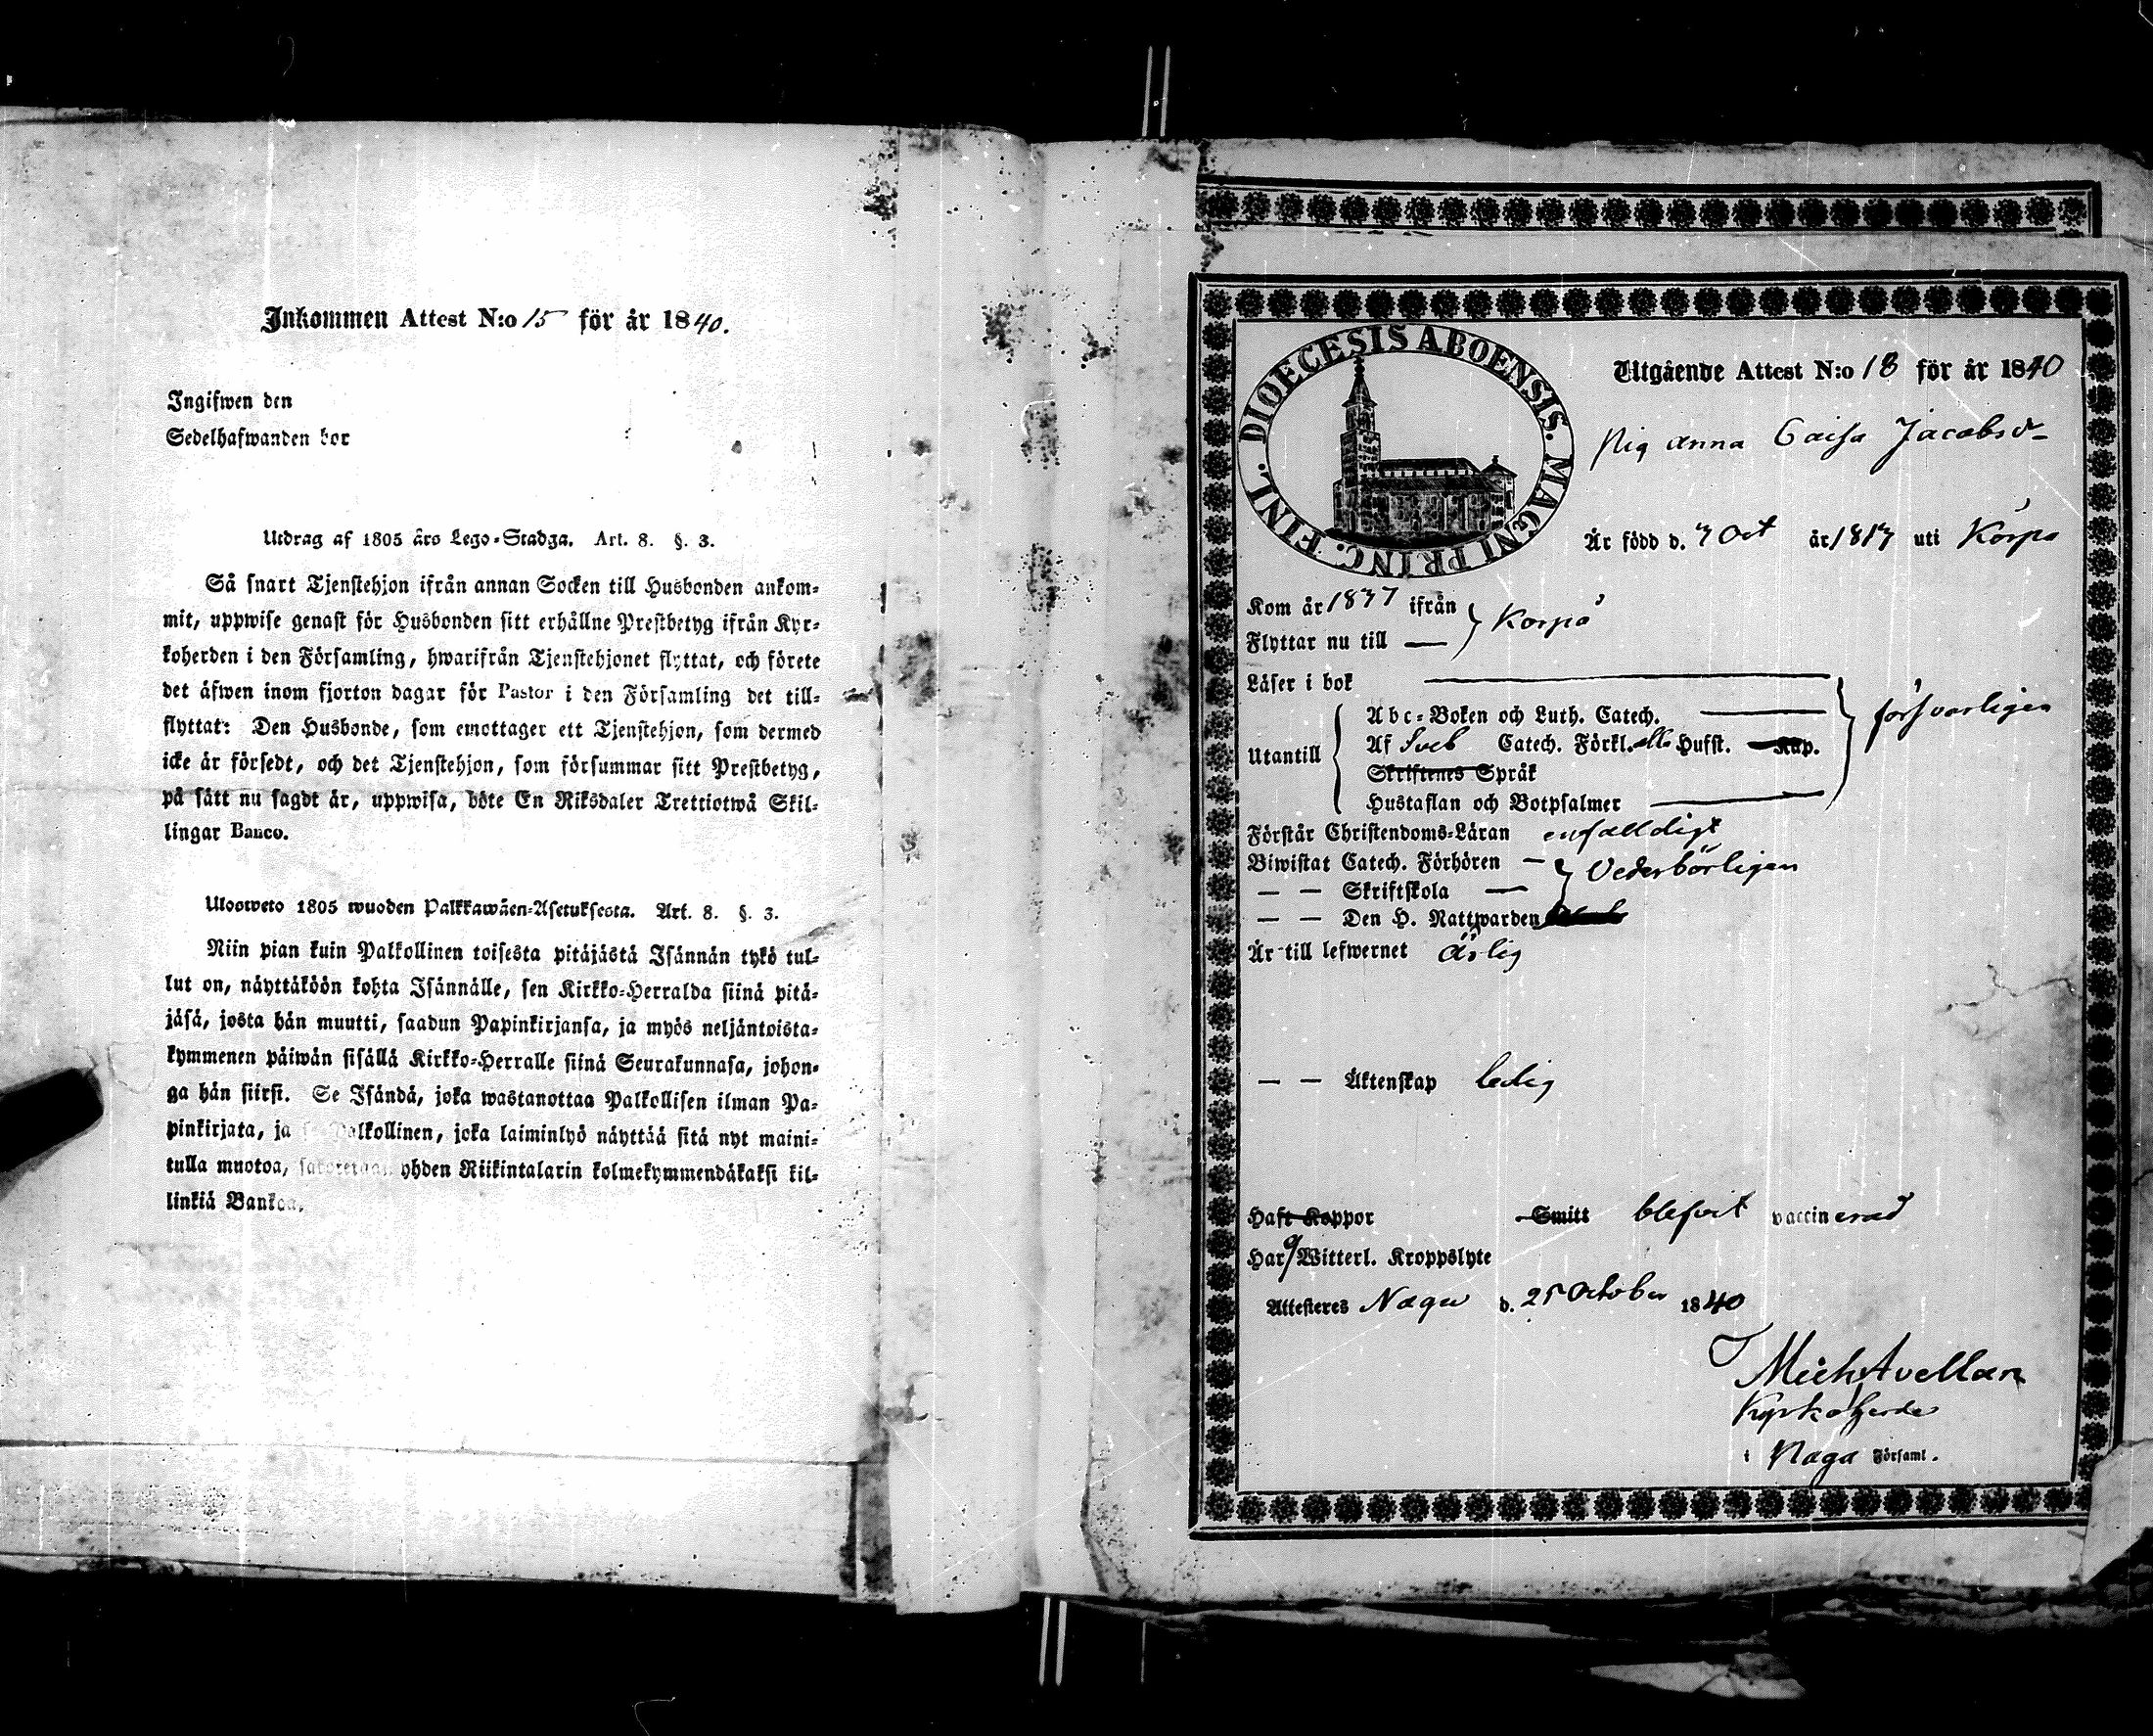 Inkommen Attest N:o 15 för år 1840.
Ingifwen den
Sedelhafwanden bor
Utdrag af 1805 års Lego-Stadga. Art. 8. §. 3.
Så snart Tjenstehjon ifrån annan Socken till Husbonden ankom-
mit, uppwise genast för Husbonden sitt erhållne Prestbetyg ifrån Kyr-
koherden i den Församling, hwarifrån Tjenstehjonet flyttat, och förete
det äfwen inom fjorton dagar för Pastor i den Församling det till-
flyttat: Den Husbonde, som emottager ett Tjenstehjon, som dermed
icke är försedt, och det Tjenstehjon, som försummar sitt Prestbetyg,
på sätt nu sagdt är, uppwisa, böte En Riksdaler Trettiotwå Skil-
lingar Banco.
Ulosweto 1805 wuoden Palkkawäen-Asetuksesta. Art. 8. §. 3.
Niin pian kuin Palkollinen toisesta pitäjästä Isännän tykö tul-
lut on, näyttäköön kohta Isännälle, sen Kirkko-Herralda siinä pitä-
jäsä, josta hän muutti, saadun Papinkirjansa, ja myös neljäntoista-
kymmenen päiwän sisällä Kirkko-Herralle siinä Seurakunnasa, johon-
ga hän siirsi. Se Isändä, joka wastanottaa Palkollisen ilman Pa-
pinkirjata, ja se Palkollinen, joka laiminlyö näyttää sitä nyt maini-
tulla muotoa, yhden Riikintalarin kolmekymmendäkaksi kil-
linkiä Bankoa.
DIOECESIS ABOENSIS. MAGNI PRINC. FINL.
Utgående Attest N:o 18 för år 1840
Pig Anna Caisa Jacobsd-
Är född d. 7 Oct år 1817 uti Korpo
Kom år 1837 ifrån
Flyttar nu till — Korpo
Läser i bok
Utantill
Abc-Boken och Luth. Catech.
Af Sveb Catech. Förkl. alla Hufst. Kap.
Skriftenes Språk
Hustaflan och Botpsalmer
försvarligen
Förstår Christendoms-Läran enfaldigt
Biwistat Catech. Förhören —
— — Skriftskola — Vederbörligen
— — Den H. Nattwarden
Är till lefwernet ärlig
— — Äktenskap ledig
Haft Koppor Smitt blefvit vaccinerad
Har ej Witterl. Kroppslyte
Attesteres Nagu d. 25 October 1840
Mich Avellan
Kyrkoherde
i Nagu Församl.